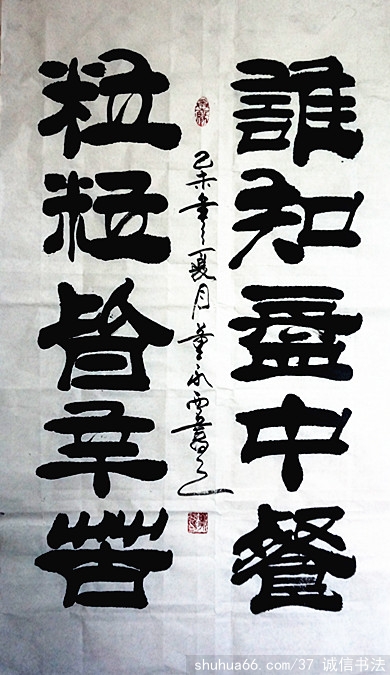 誰知盘中餐
乙未年夏月董永西書之
粒粒皆辛苦
shuhua66.com/37 诚信书法